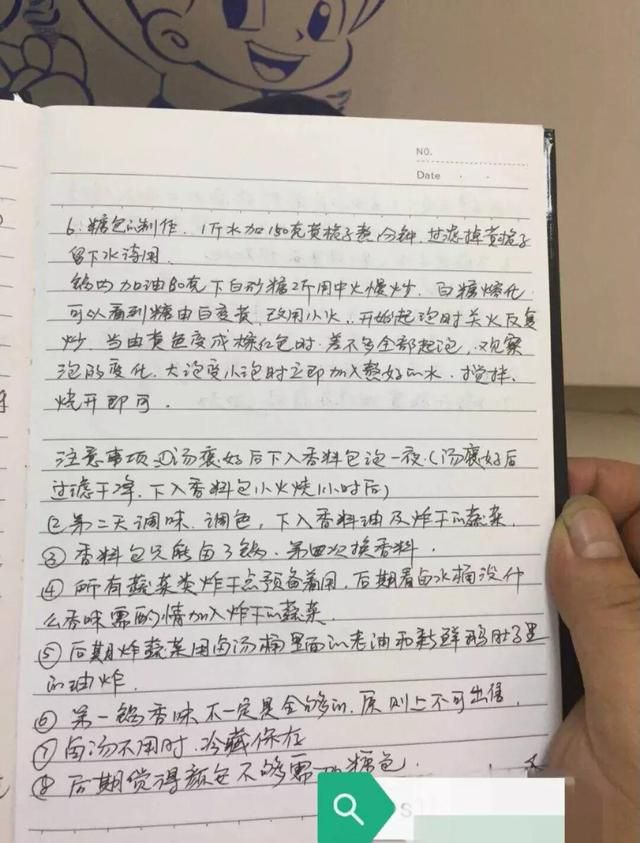 NO.
Date
6:糖色的制作. 1斤水加150克黄栀子煮 分钟, 过滤掉黄栀子
留下水待用.
锅内加油80克下白砂糖2斤用中火慢炒. 白糖熔化
可以看到糖由白变黄, 改用小火, 开始起泡时关火反复
炒, 当由黄色变成棕红色时, 差不多全部起泡, 观察
泡的变化, 大泡变小泡时立即加入熬好的水. 搅拌,
烧开即可.
注意事项:①汤熬好后下入香料包泡一夜.(汤熬好后
过滤干净, 下入香料包小火烧1小时后)
②第二天调味, 调色, 下入香料油及炸干的蔬菜.
③香料包只能卤3锅, 第四次换香料.
④所有蔬菜类炸干点预备着用, 后期看卤水桶没什
么香味需酌情加入炸干的蔬菜
⑤后期炸蔬菜用卤汤桶里面的老油和新鲜鸭肚子里
的油炸.
⑥第一锅香味不一定是全够的, 原则上不可出售.
⑦卤汤不用时, 冷藏保存
⑧后期觉得颜色不够需 糖色.